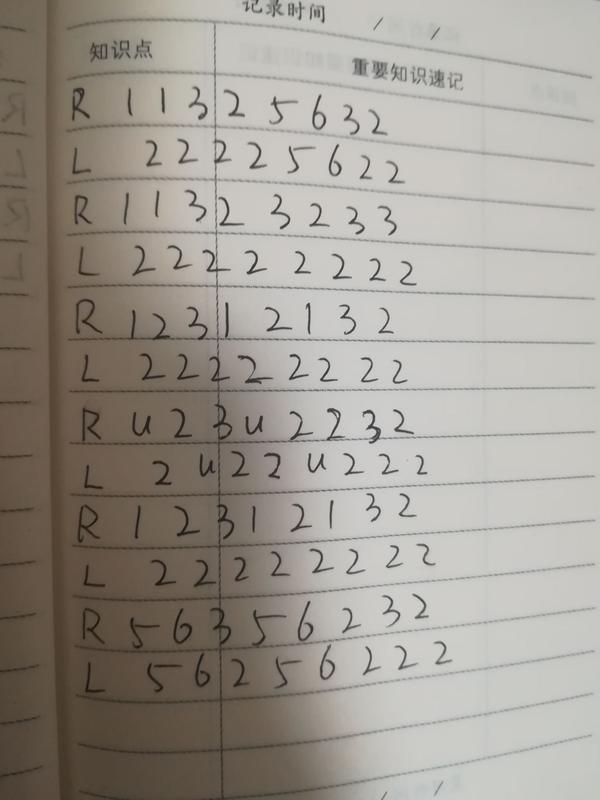 记录时间 / /
知识点 重要知识速记
R 1 1 3 2 5 6 3 2
L 2 2 2 2 5 6 2 2
R 1 1 3 2 3 2 3 3
L 2 2 2 2 2 2 2 2
R 1 2 3 1 2 1 3 2
L 2 2 2 2 2 2 2 2
R u 2 3 u 2 2 3 2
L 2 u 2 2 u 2 2 2
R 1 2 3 1 2 1 3 2
L 2 2 2 2 2 2 2 2
R 5 6 3 5 6 2 3 2
L 5 6 2 5 6 2 2 2
/ /